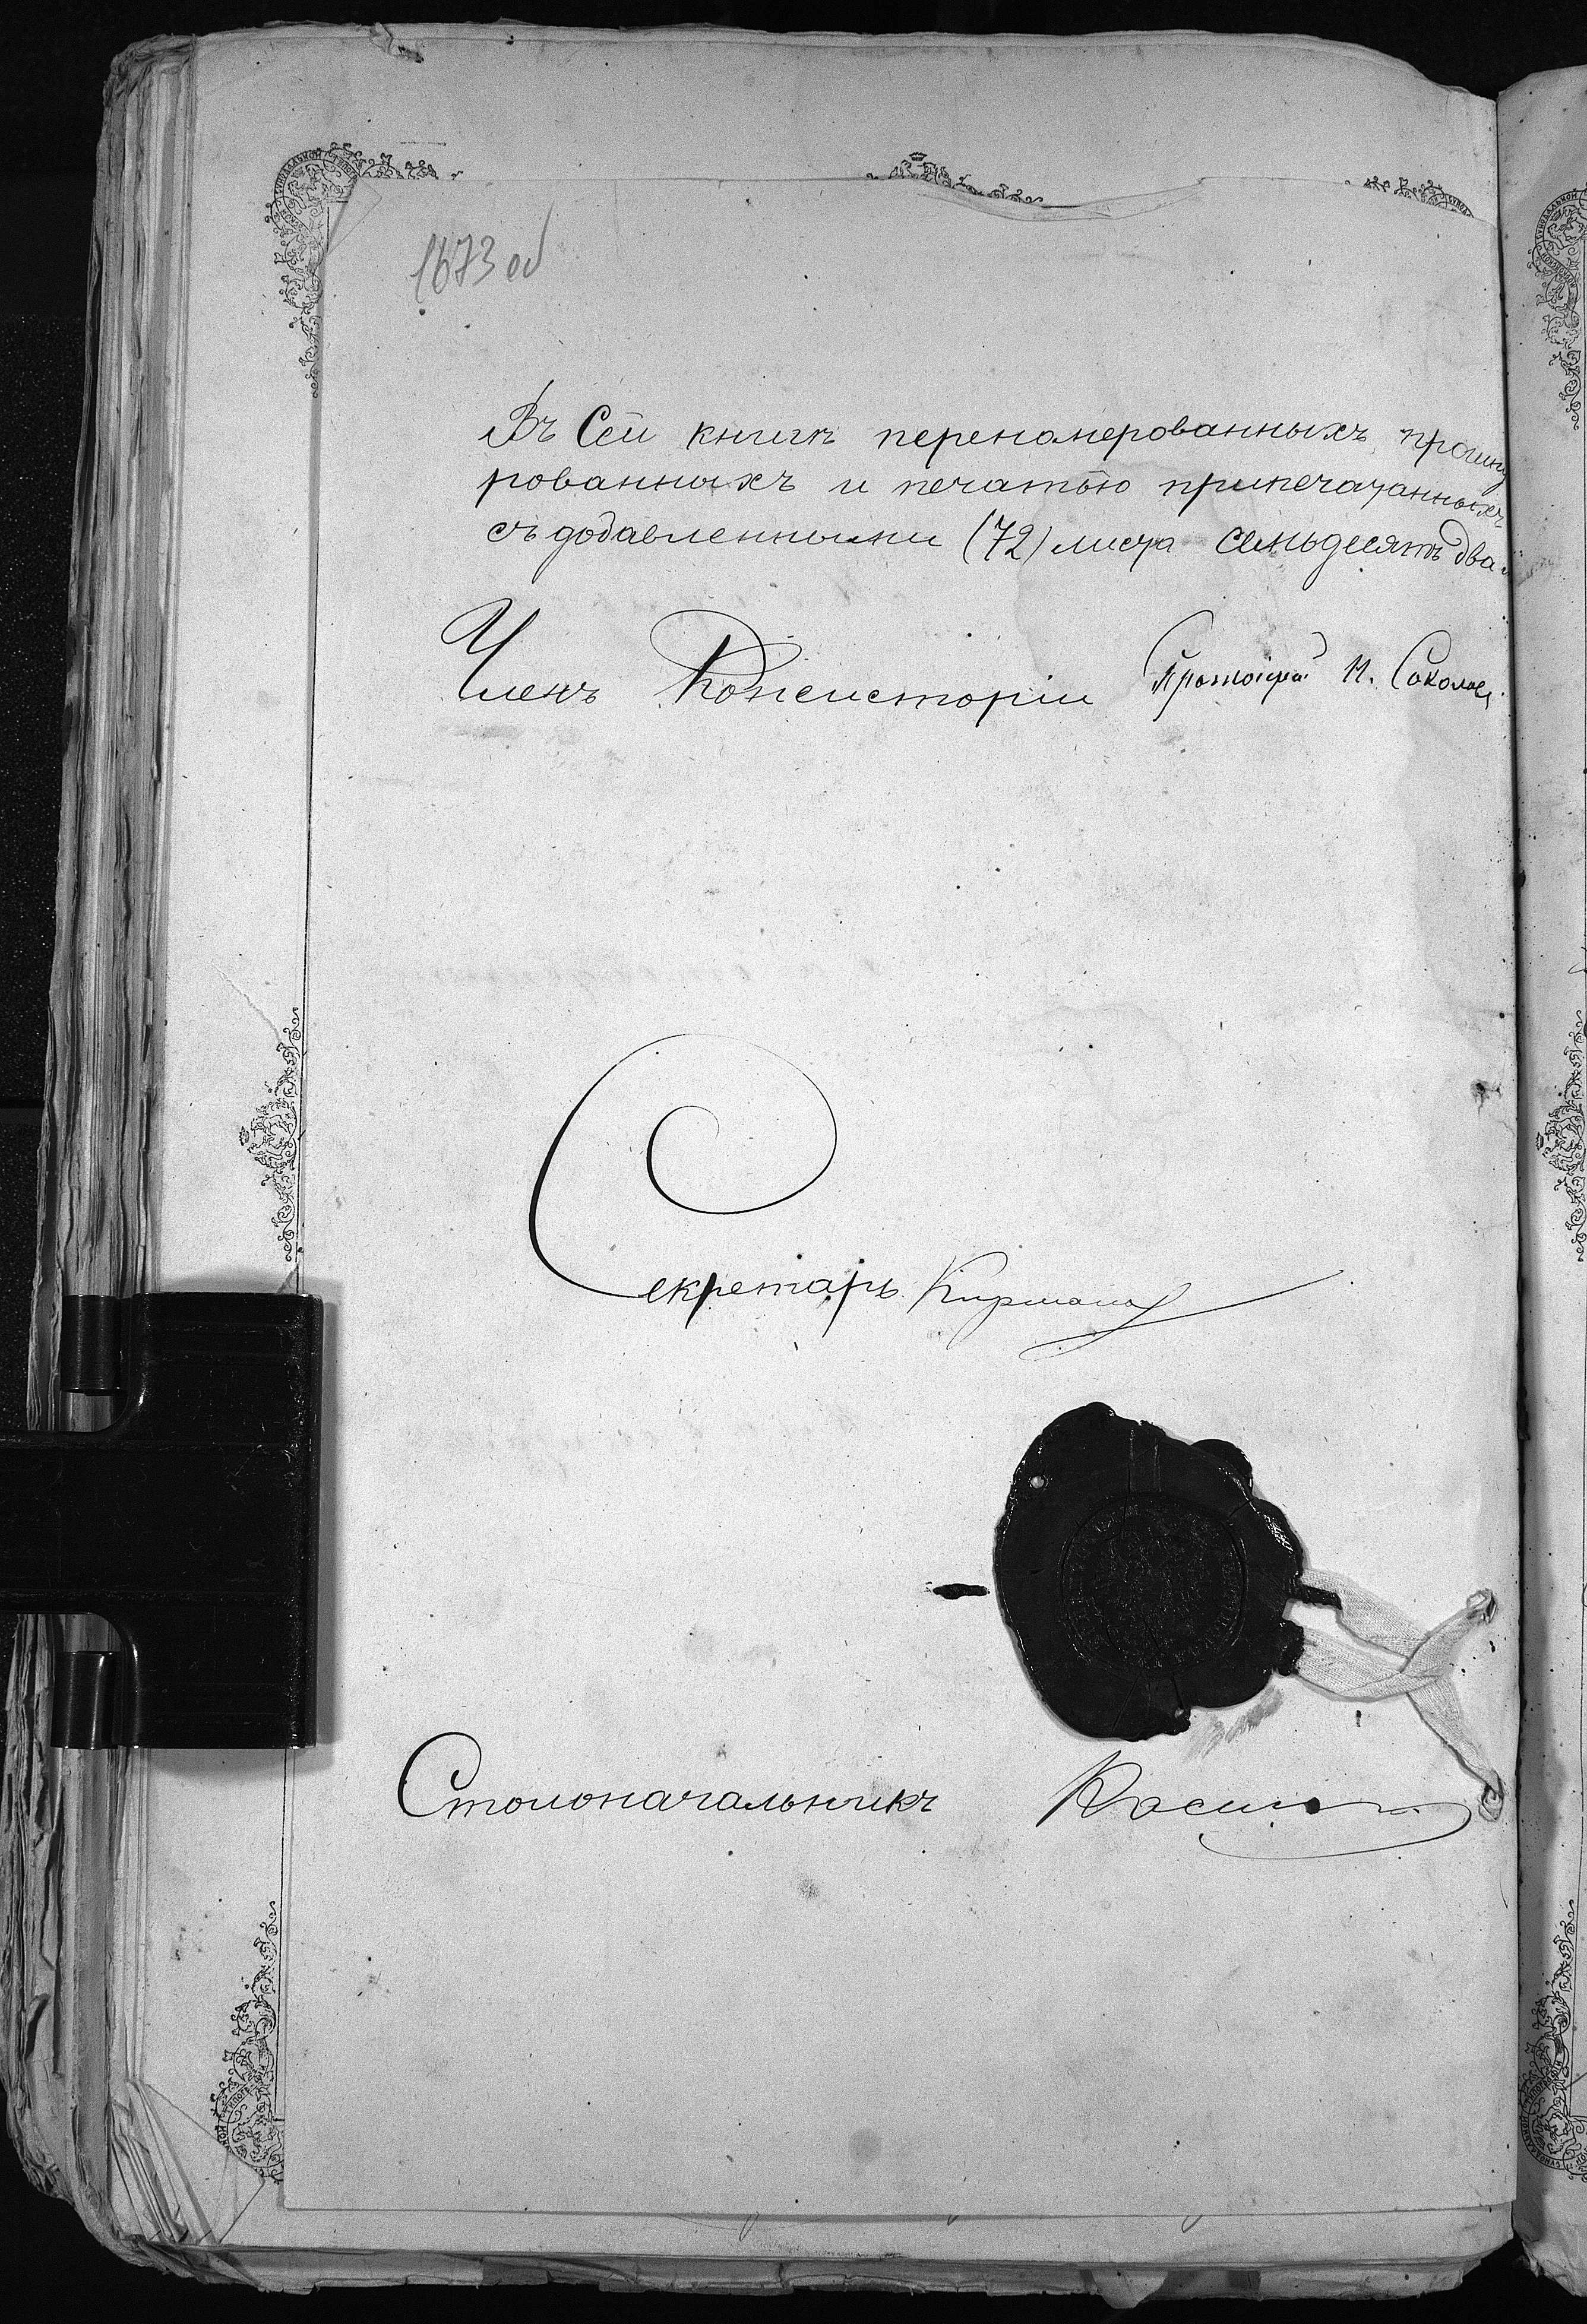 1673 об
Въ Сей книгѣ переномерованныхъ, прошну
рованныхъ и печатью припечатанныхъ
съ добавленными (72) листа семьдесятъ два.
Членъ Консисторіи Протоіерей Н. Соколовъ
Секретарь
Столоначальникъ